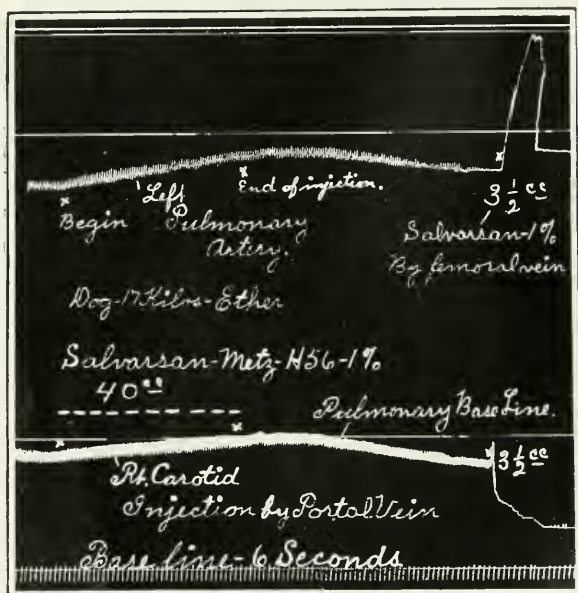 Begin
Left Pulmonary Artery.
End of injection.
3 1/2 cc
Salvarsan-1%
By femoral vein
Dog-17 Kilos-Ether
Salvarsan-Metz-H56-1%
40 cc
Pulmonary Base Line.
3 1/2 cc
Rt. Carotid
Injection by Portal Vein
Base line-6 Seconds